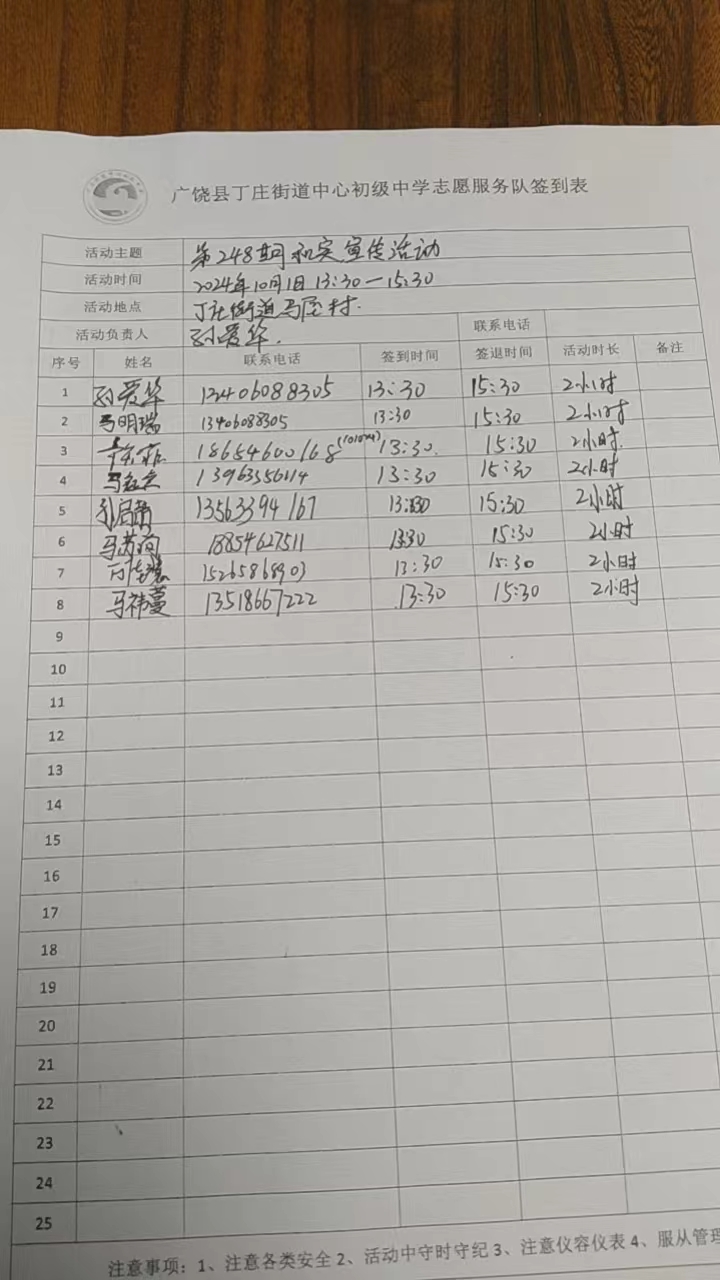 广饶县丁庄街道中心初级中学志愿服务队签到表
活动主题 第248期 宣传活动
活动时间 2024年10月1日 13:30—15:30
活动地点 丁庄街道马 村.
活动负责人 孙爱华. 联系电话
序号 姓名 联系电话 签到时间 签退时间 活动时长 备注
1 孙爱华 13406088305 13:30 15:30 2小时
2 马明瑞 13406088305 13:30 15:30 2小时
3 18654600168 13:30. 15:30 2小时.
4 13:30 15:30 2小时
5 13563394167 15:30 2小时
6 18854627511 1330 15:30 2小时
7 15265868903 13:30 15:30 2小时
8 马祎蔓 13518667222 13:30 15:30 2小时
9
10
11
12
13
14
15
16
17
18
19
20
21
22
23
24
25
注意事项：1、注意各类安全 2、活动中守时守纪 3、注意仪容仪表 4、服从管理